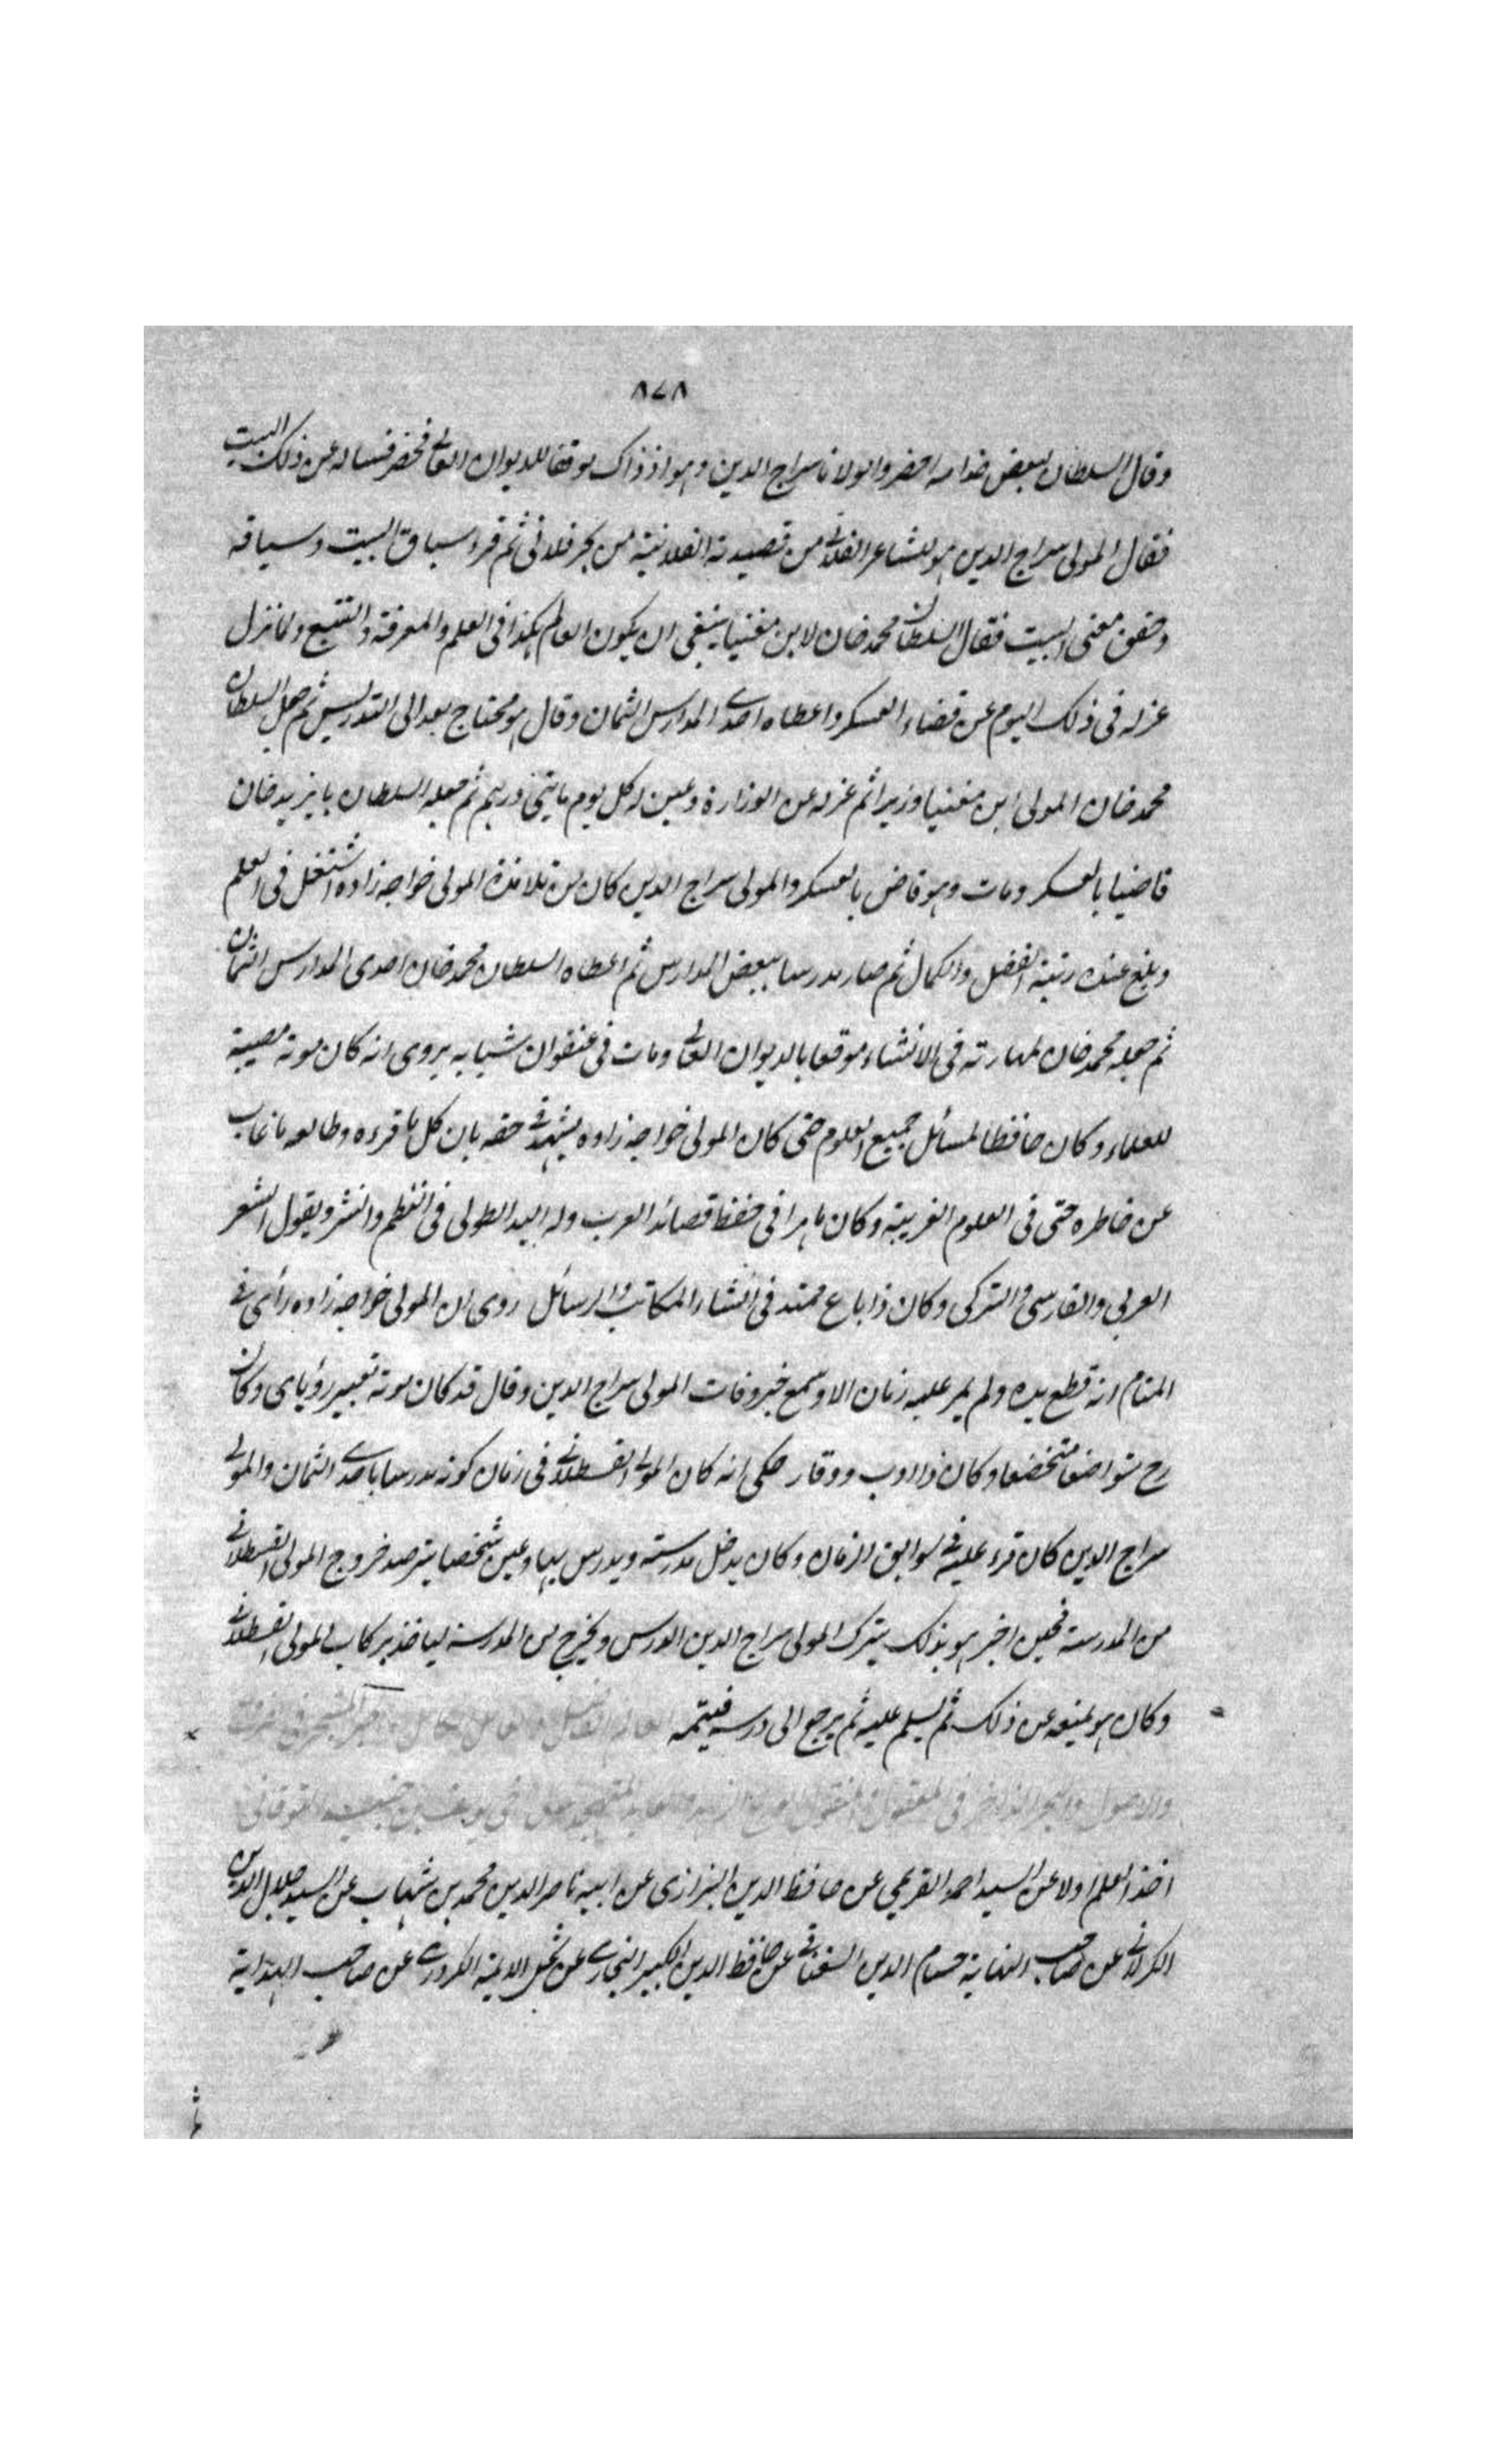 ٨٧٨
وقال السلطان لبعض خدامه احضروا مولانا سراج الدين وهو اذ ذاك موقعا للديوان العالي فحضر فساله عن ذلك البيت
فقال المولى سراج الدين هو للشاعر الفلاني من قصيدته الفلانية من بحر فلاني ثم قرء سباق البيت وسياقه
وحقق معنى البيت فقال السلطان محمد خان لابن مغنيسا ينبغي ان يكون العالم هكذا في العلم والمعرفة والتتبع ولما نزل
عزله في ذلك اليوم عن قضاء العسكر واعطاه احدى المدارس الثمان وقال هو محتاج بعد الى التدريس ثم جعل السلطان
محمد خان المولى ابن مغنيسا وزيرا ثم عزله عن الوزارة وعين له كل يوم مايتي درهم ثم جعله السلطان بايزيد خان
قاضيا بالعسكر ومات وهو قاض بالعسكر والمولى سراج الدين كان من تلامذة المولى خواجه زاده اشتغل في العلم
وبلغ عنده رتبة الفضل والكمال ثم صار مدرسا ببعض المدارس ثم اعطاه السلطان محمد خان احدى المدارس الثمان
ثم جعله محمد خان لمهارته في الانشاء موقعا بالديوان العالي ومات في عنفوان شبابه يروى انه كان موته مصيبة
للعلماء وكان حافظا لمسائل جميع العلوم حتى كان المولى خواجه زاده يشهد في حقه بان كل ما قرءه وطالعه ما غاب
عن خاطره حتى في العلوم الغريبة وكان ماهرا في حفظ قصائد العرب وله اليد الطولى في النظم والنثر ويقول الشعر
العربي والفارسي والتركي وكان ذا باع ممتد في انشاء المكاتب والرسائل روى ان المولى خواجه زاده رأى في
المنام انه قطع يده ولم يمر عليه زمان الا وسمع خبر وفات المولى سراج الدين وقال قد كان موته تعبير رؤياى وكان
رح متواضعا متخضعا وكان ذا ادب ووقار حكى انه كان المولى القسطلاني في زمان كونه مدرسا باحدى الثمان والمولى
سراج الدين كان قرء عليه في سوابق الزمان وكان يدخل مدرسته ويدرس بها وعين شخصا يترصد خروج المولى القسطلاني
من المدرسة فحين اخبر هو بذلك يترك المولى سراج الدين الدرس ويخرج من المدرسة لياخذ بركاب المولى القسطلاني
وكان هو يمنعه عن ذلك ثم يسلم عليه ثم يرجع الى درسه فيتمه العالم الفاضل والعامل الكامل
والاصول والبحر الزاخر في المعقول والمنقول
اخذ العلم اولا عن السيد احمد القريمي عن حافظ الدين البزازى عن ابيه ناصر الدين محمد بن شهاب عن السيد جلال الدين
الكرلاني عن صاحب النهاية حسام الدين السغناقي عن حافظ الدين الكبير البخارى عن شمس الايمة الكردرى عن صاحب الهداية